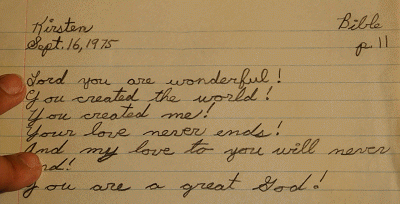 Kirsten Bible
Sept. 16, 1975 p. 11
Lord you are wonderful!
You created the world!
You created me!
Your love never ends!
And my love to you will never
end!
You are a great God!